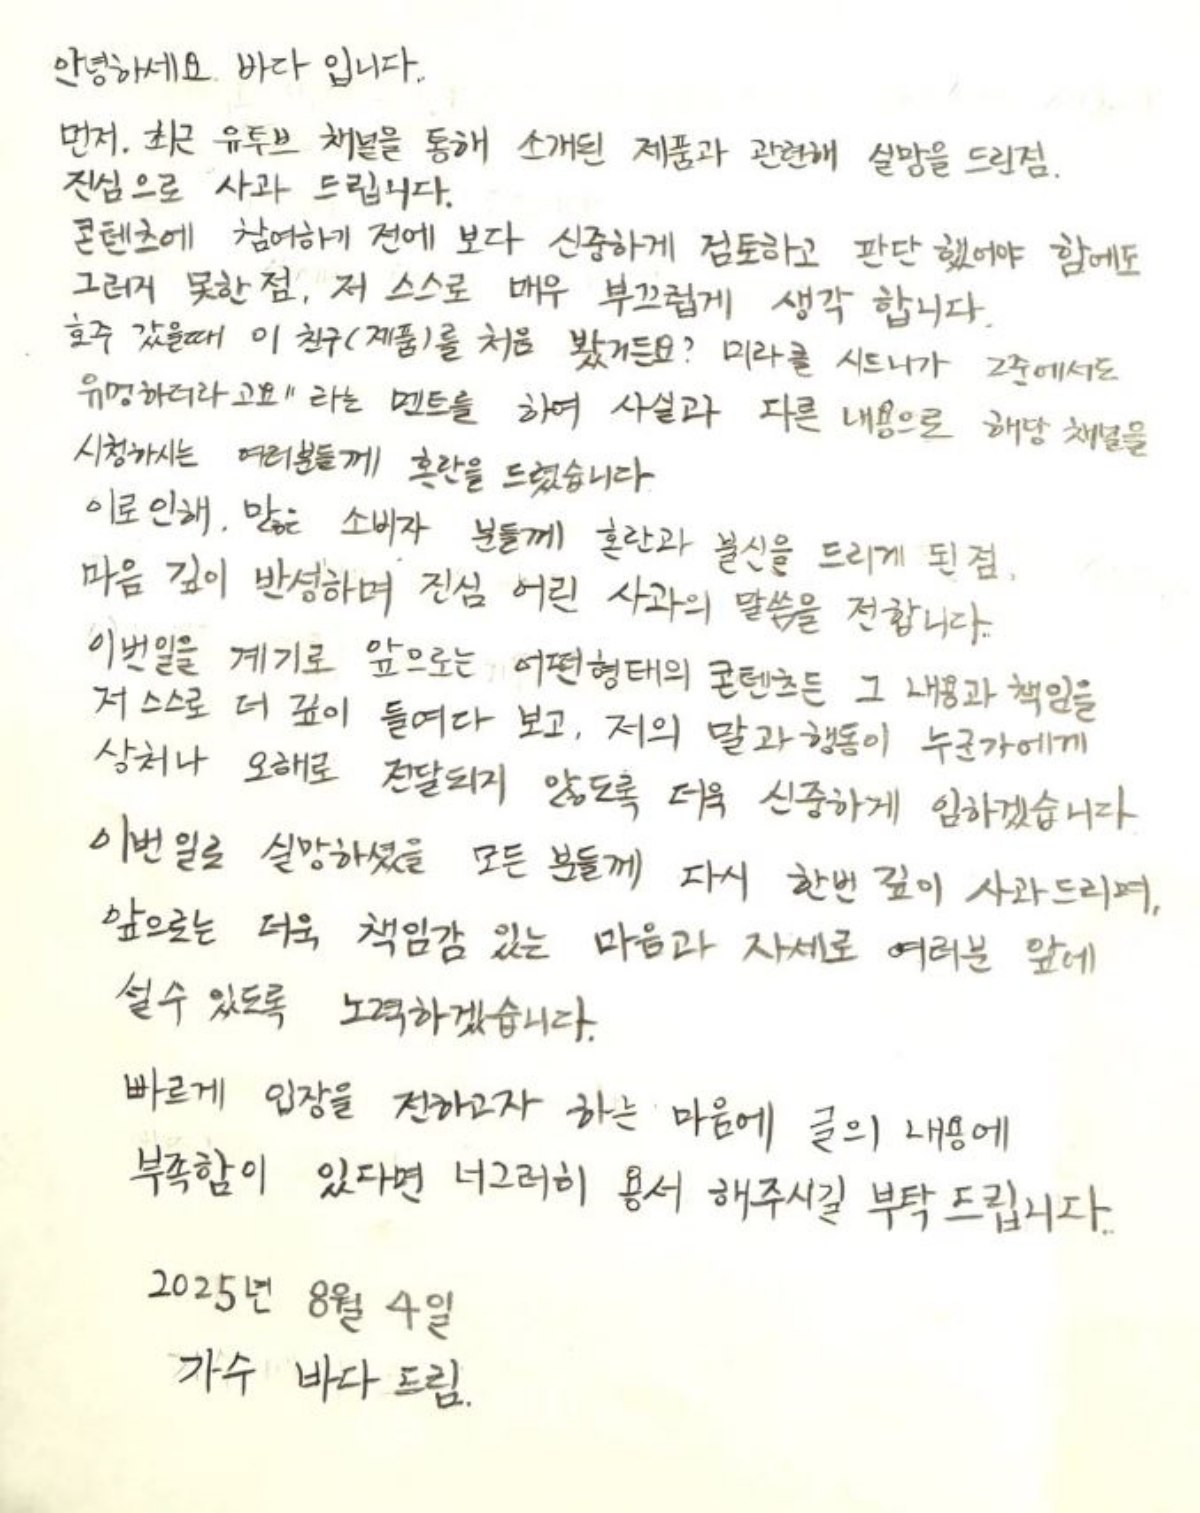 안녕하세요. 바다 입니다.
먼저, 최근 유투브 채널을 통해 소개된 제품과 관련해 실망을 드린점.
진심으로 사과 드립니다.
콘텐츠에 참여하기 전에 보다 신중하게 검토하고 판단 했어야 함에도
그러지 못한 점, 저 스스로 매우 부끄럽게 생각 합니다.
호주 갔을때 이 친구(제품)를 처음 봤거든요? 미라클 시드니가 그중에서도
유명하더라고요" 라는 멘트를 하여 사실과 다른 내용으로 해당 채널을
시청하시는 여러분들께 혼란을 드렸습니다
이로 인해, 많은 소비자 분들께 혼란과 불신을 드리게 된 점,
마음 깊이 반성하며 진심 어린 사과의 말씀을 전합니다.
이번일을 계기로 앞으로는 어떤형태의 콘텐츠든 그 내용과 책임을
저 스스로 더 깊이 들여다 보고, 저의 말과 행동이 누군가에게
상처나 오해로 전달되지 않도록 더욱 신중하게 임하겠습니다
이번 일로 실망하셨을 모든 분들께 다시 한번 깊이 사과드리며,
앞으로는 더욱 책임감 있는 마음과 자세로 여러분 앞에
설수 있도록 노력하겠습니다.
빠르게 입장을 전하고자 하는 마음에 글의 내용에
부족함이 있다면 너그러히 용서 해주시길 부탁 드립니다.
2025년 8월 4일
가수 바다 드림.